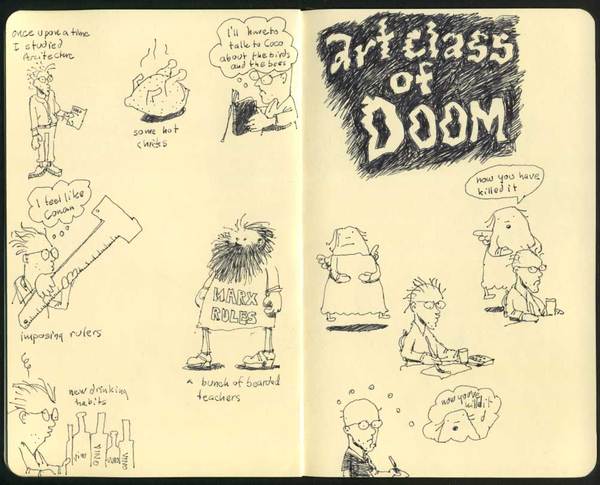 once upon a time
I studied
Arcitecture
some hot
chicks
I'll have to
talk to Coco
about the birds
and the bees
I feel like
Conan
imposing rulers
MARX
RULES
a bunch of bearded
teachers
new drinking
habits
VINO
VINO
VINO
VINO
art class
of
DOOM
now you have
killed it
now you've
killed it